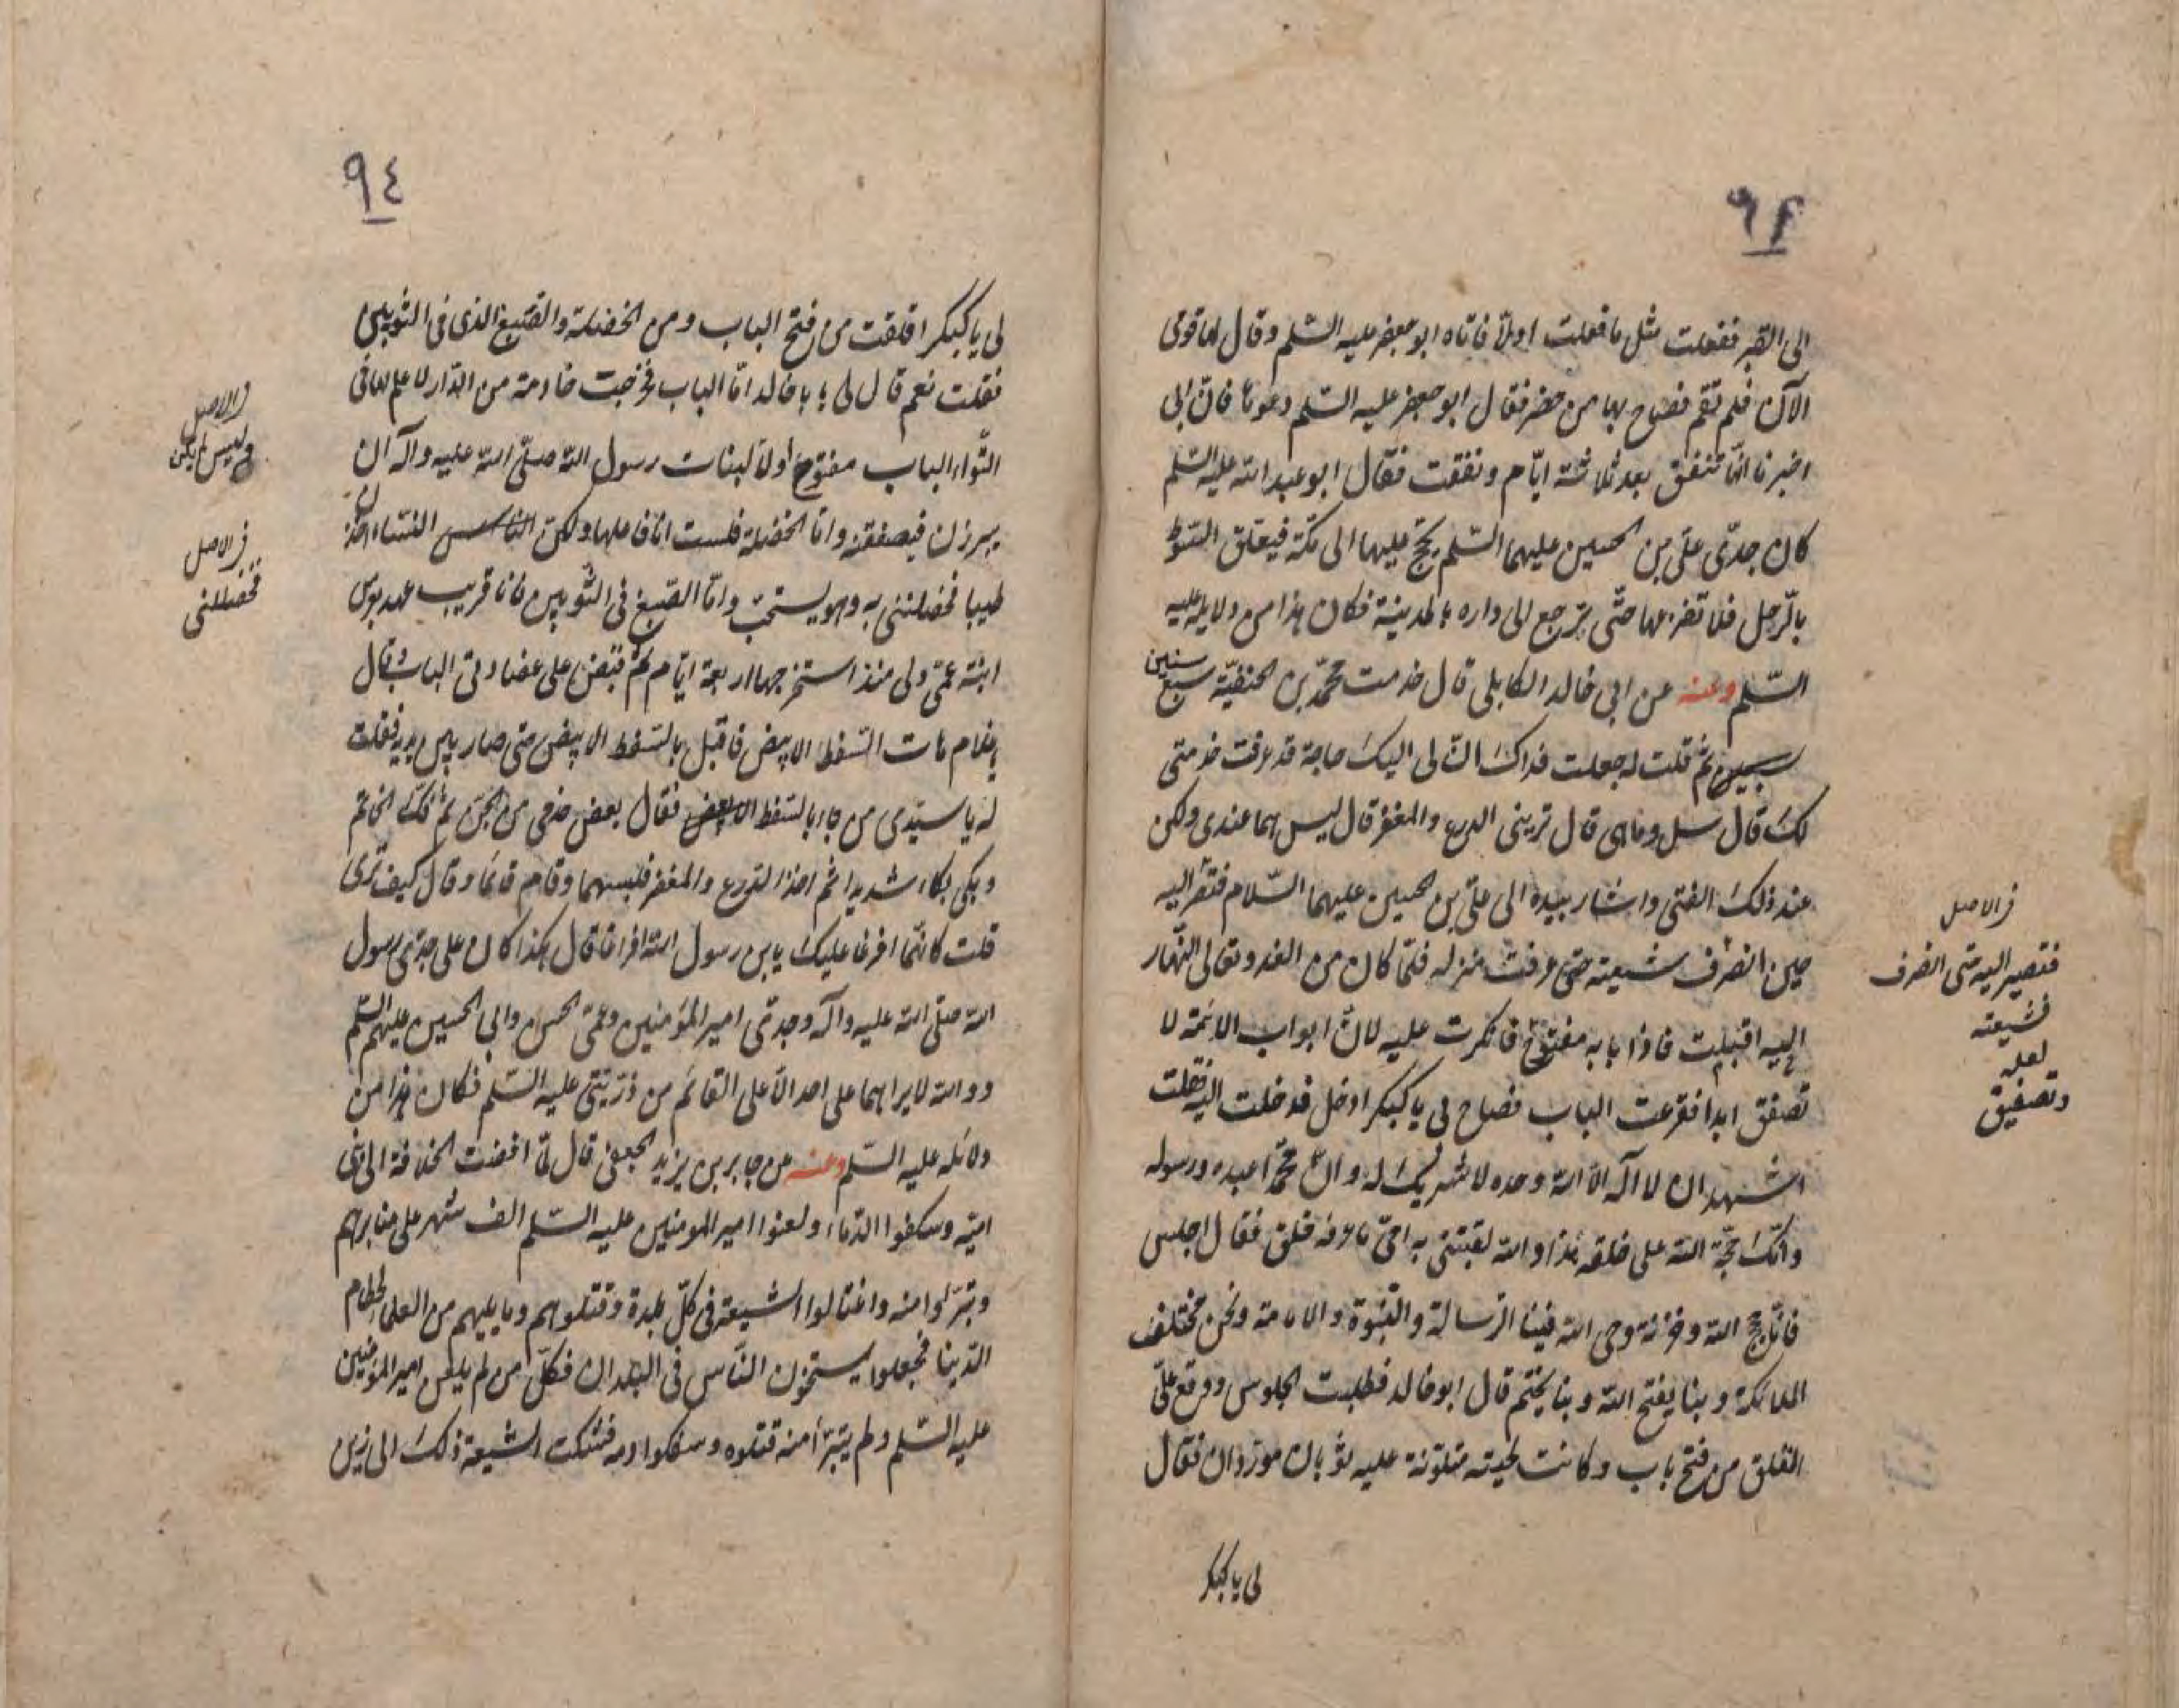 الى القبر ففعلت مثل ما فعلت اولا فاتاه ابو جعفر عليه السلم وقال لها قومى
الآن فلم تقم فضاح بها من حضر فقال ابو جعفر عليه السلم دعوها فان ابى
اخبرنا انها تنفق بعد ثلاثة ايام ونفقت فقال ابو عبد الله عليه السلم
كان جدى على بن الحسين عليهما السلم يحج عليها الى مكة فيعلق السوط
بالرحل فلا تضربها حتى يرجع الى داره بالمدينة فكان هذا من دلايله عليه
السلم وعنه عن ابى خالد الكابلى قال خدمت محمد بن الحنفية سبع سنين
ثم قلت له جعلت فداك ان لى اليك حاجة قد عرفت خدمتى
لك قال سل وما هى قال ترينى الدرع والمغفر قال ليس هما عندى ولكن
عند ذلك الفتى واشار بيده الى على بن الحسين عليهما السلام فتقر اليه
حين انصرف شيعته حتى عرفت منزله فلما كان من الغد وتعالى النهار
اليه اقبلت فاذا بابه مفتوح فانكرت عليه لان ابواب الائمة لا
تصفق ابدا فقرعت الباب فصاح لى يا كنكر ادخل فدخلت اليه فقلت
اشهد ان لا اله الا الله وحده لا شريك له وان محمدا عبده ورسوله
وانك حجة الله على خلقه هذا والله لقبتنى به امى ما عرفه خلق فقال اجلس
فانا حجج الله وخزنة وحى الله فينا الرسالة والنبوة والامامة ونحن مختلف
الملائكة وبنا يفتح الله وبنا يختم قال ابو خالد فطلبت الجلوس ووقع على
القلق من فتح باب وكانت لحيته متلوثة عليه ثوبان موردان فقال
لى يا كنكر
فى الاصل
فتصير اليه حتى انصرف
فشيعته
لعله
وتصفيق
لى يا كنكر اقلقت من فتح الباب ومن الخضلة والصبغ الذى فى الثوبين
فقلت نعم قال لى يا با خالد اما الباب فخرجت خادمة من الدار لا علم لها فى
التواء الباب مفتوح اولا لبنات رسول الله صلى الله عليه وآله ان
يبرزن فيصفقنه واما الخضلة فلست انا فاعلها ولكن النساء اخذن
طيبا فخضلننى به وهو يستحب واما الصبغ فى الثوبين فانا قريب عهد بعرس
ابنة عمى ولى منذ استخرجها اربعة ايام ثم قبض على عضادتى الباب وقال
يا غلام هات السفط الابيض فاقبل بالسفط الابيض حتى صار بين يديه فقلت
له يا سيدى من جاء بالسفط الابيض فقال بعض خدمى من الجن ثم فك الخاتم
وبكى بكاء شديدا ثم اخذ الدرع والمغفر فلبسهما وقام قائما وقال كيف ترى
قلت كانما افرغا عليك يابن رسول الله افراغا قال هكذا كان على جدى رسول
الله صلى الله عليه وآله وجدى امير المؤمنين وعمى الحسن وابى الحسين عليهم السلم
ووالله لا يراهما على احد الا على القائم من ذريتى عليه السلم فكان هذا من
دلائله عليه السلم وعنه عن جابر بن يزيد الجعفى قال لما افضت الخلافة الى بنى
امية وسكفوا الدماء ولعنوا امير المومنين عليه السلم الف شهر على منابرهم
وتبرءوا منه واغتالوا الشيعة فى كل بلدة وقتلوهم وما يليهم من العلماء لحطام
الدنيا فجعلوا يستحون الناس فى البلدان فكل من لم يلعن امير المؤمنين
عليه السلم ولم يتبرأ منه قتلوه وسفكوا دمه فشكت الشيعة ذلك الى زين
فى الاصل
وليس يكن
فى الاصل
فخضللنى
٩٤